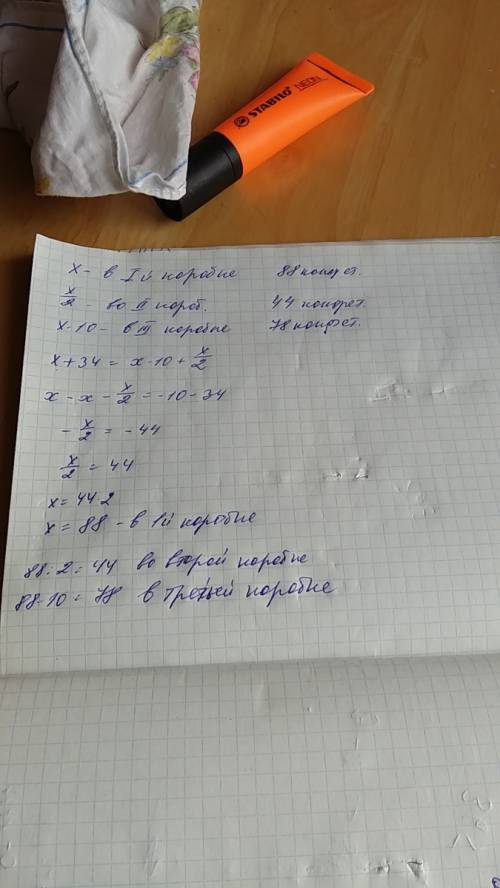 STABILO NEON
x - в I й коробке 88 конфет.
x/2 - во II короб. 44 конфет.
x-10 - в III коробке 78 конфет.
x+34 = x-10+x/2
x - x - x/2 = -10-34
-x/2 = -44
x/2 = 44
x = 44·2
x = 88 - в 1й коробке
88:2=44 во второй коробке
88-10=78 в третьей коробке